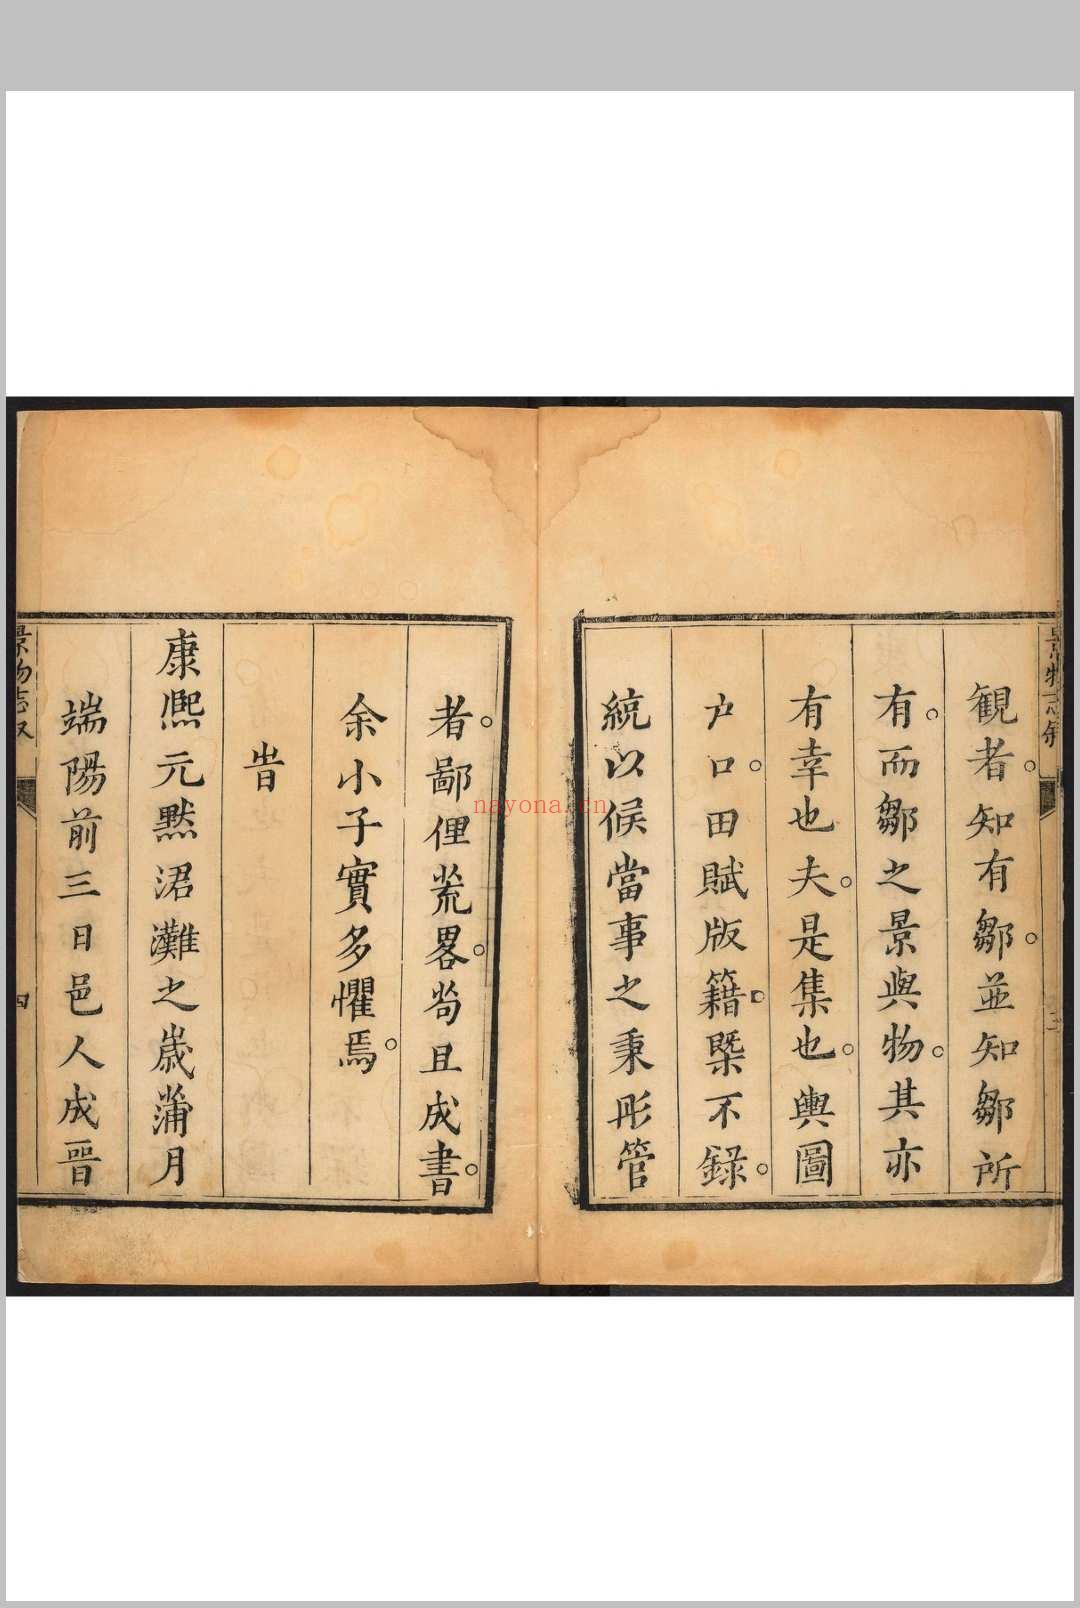 觀者知有鄒並知鄒所
有而鄒之景與物其亦
有幸也夫是集也輿圖
户口田賦版籍槩不錄
統以俟當事之秉彤管
者鄙俚荒畧茍且成書
余小子實多懼焉
旹
康熈元黓涒灘之歲蒲月
端陽前三日邑人成晉
景物志
四
nayona.cn